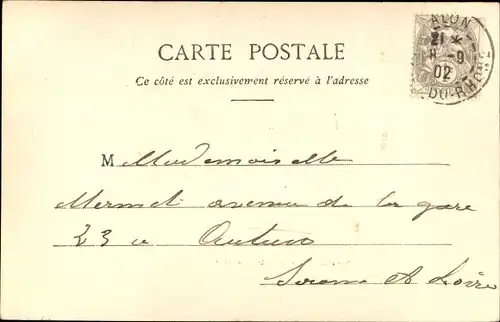 CARTE POSTALE
Ce côté est exclusivement réservé à l'adresse
ALON
21 *
8 -9
02
DU-RHONE
M Mademoiselle
Mermet avenue de la gare
23 a Autun
Saone & Loire